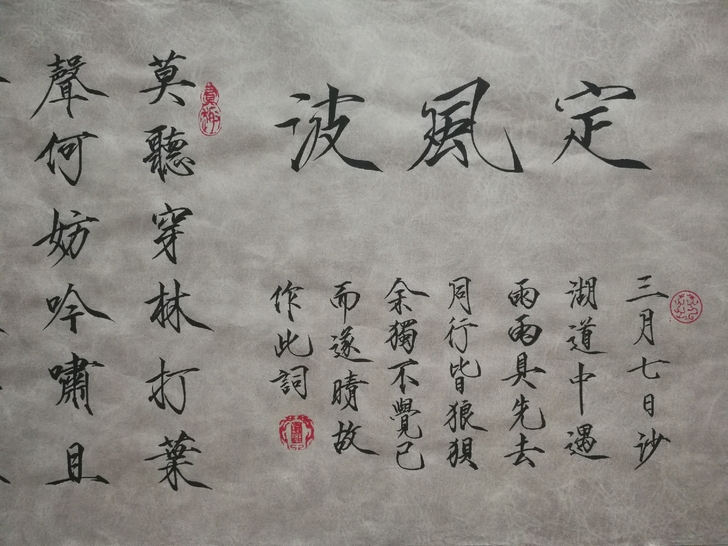 定風波
三月七日沙
湖道中遇
雨雨具先去
同行皆狼狽
余獨不覺已
而遂晴故
作此詞
莫聽穿林打葉
聲何妨吟嘯且